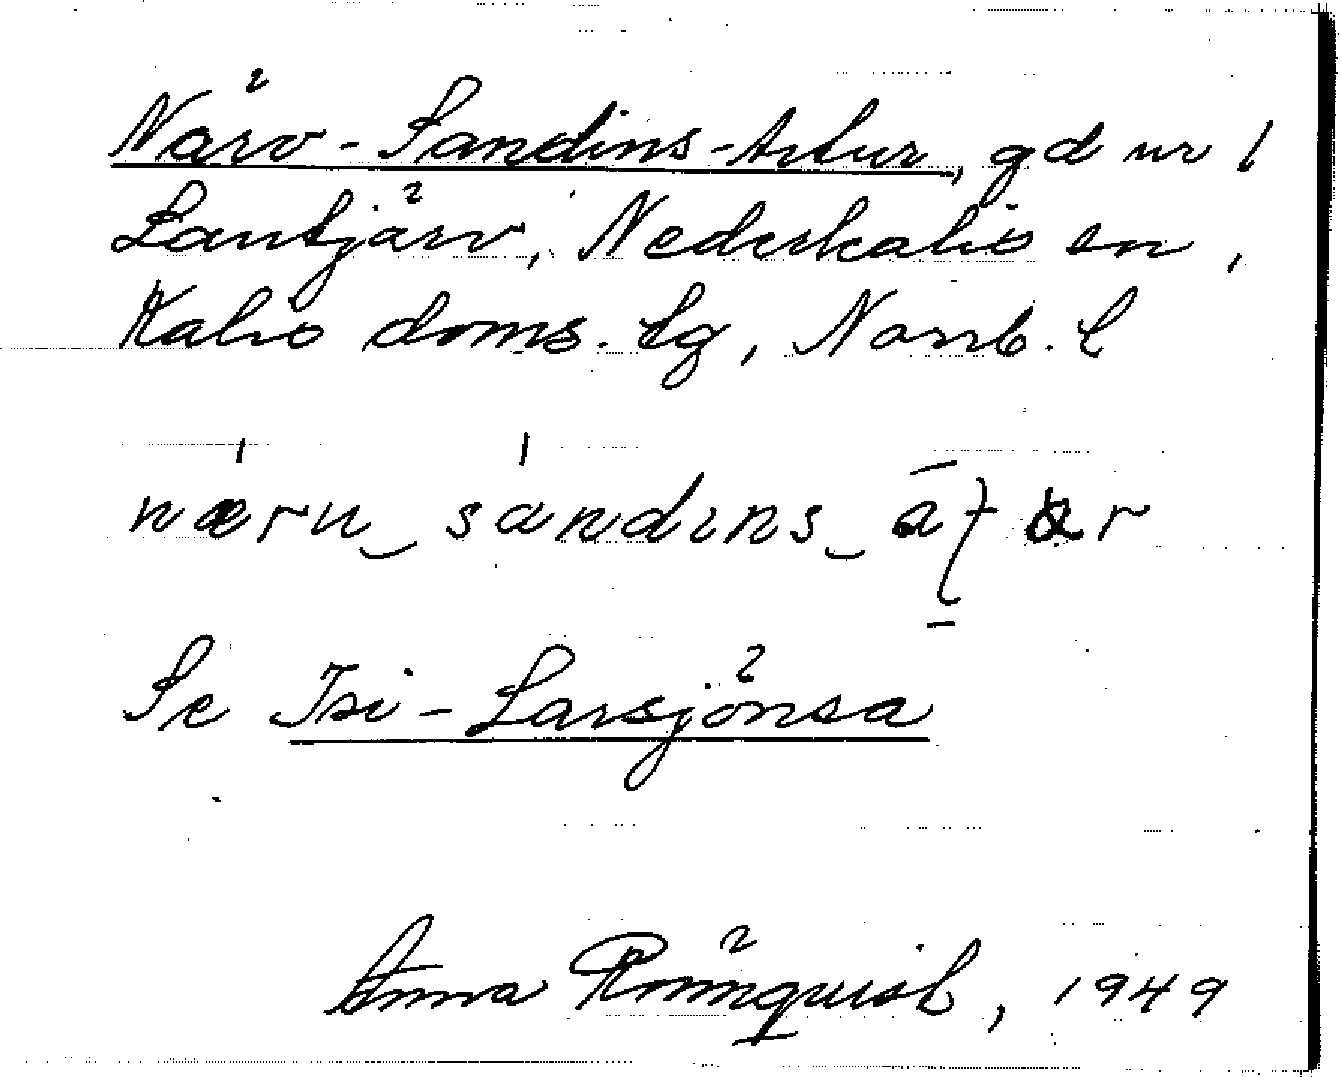 Närv-Sandins-Artur, gd nr 1
Lantjärv, Nederkalix sn,
Kalix doms. tg, Norrb. l
Se Isi-Larsjönsa
Anna Rönnquist, 1949